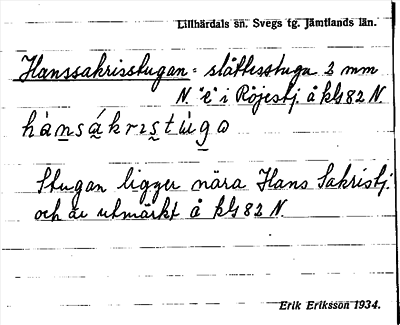 Lillhärdals sn. Svegs tg. Jämtlands län.
Hanssakrisstugan = slåttesstuga 2 mm
N. "e" i Röjestj. å kbl 82 N.
hànsákrɪstùgo
Stugan ligger nära Hans Sakristj.
och är utmärkt å kbl 82 N.
Erik Eriksson 1934.